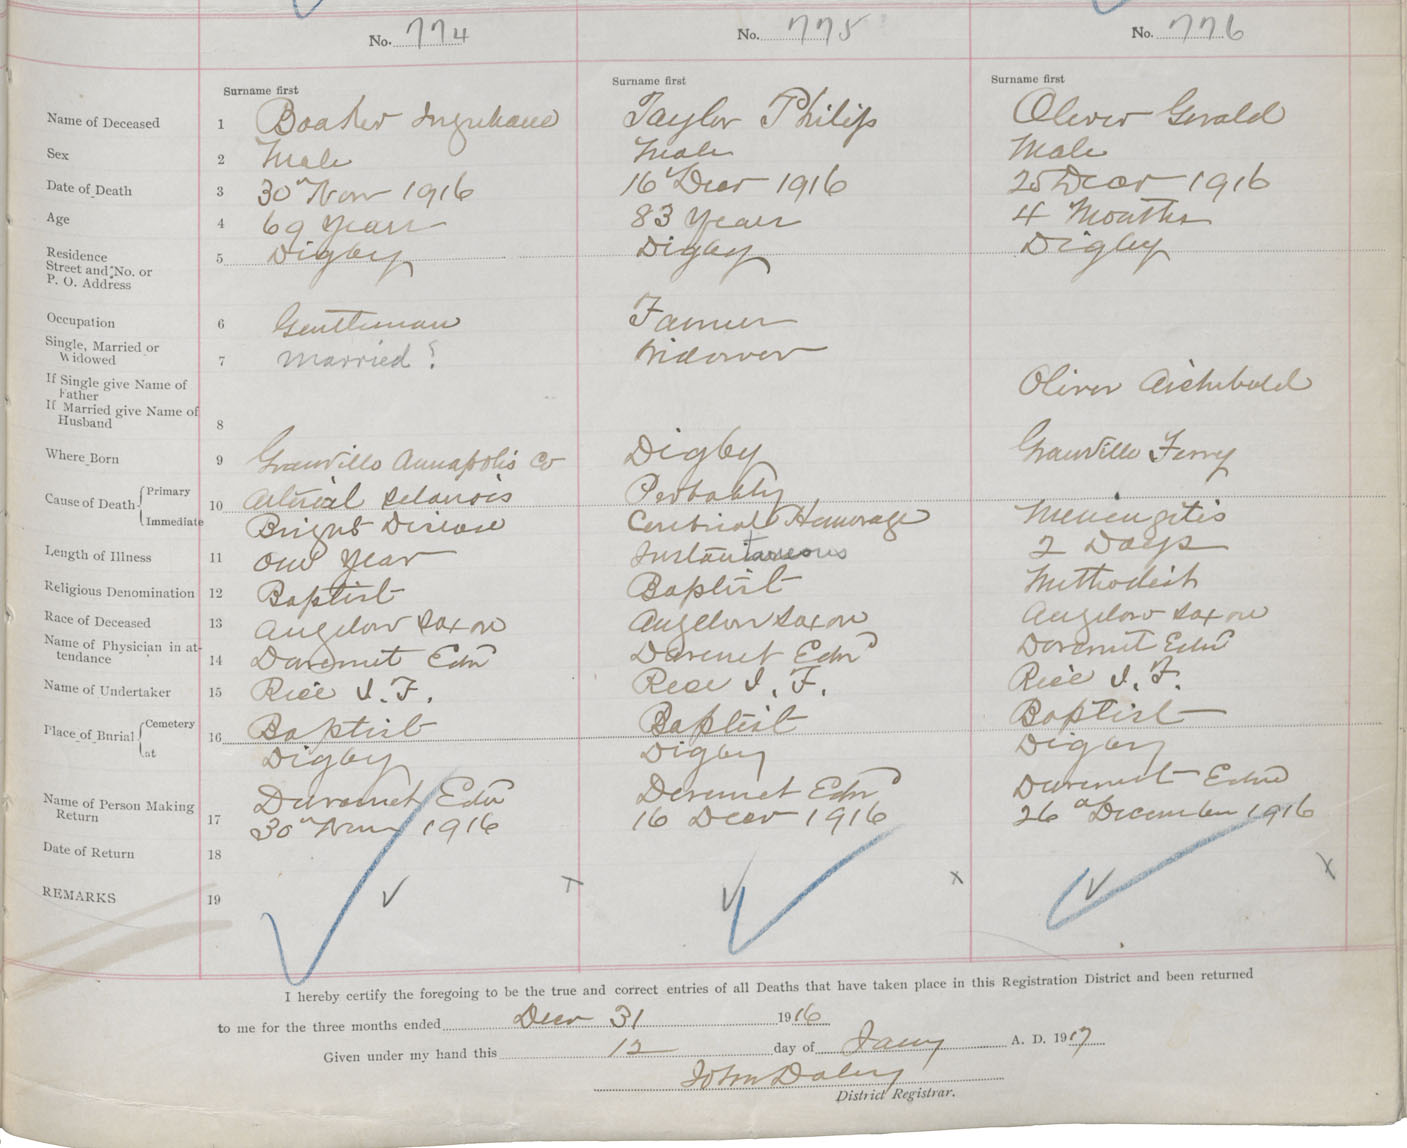 No. 774 No. 775 No. 776
Surname first Surname first Surname first
Name of Deceased 1 Taylor Philip Oliver Gerald
Sex 2 Male Male Male
Date of Death 3 30" Nov 1916 16" Decr 1916 25 Decr 1916
Age 4 69 Years 83 Years 4 Months
Residence
Street and No. or
P. O. Address
5 Digby Digby Digby
Occupation 6 Gentleman Farmer
Single, Married or
Widowed
7 Married? Widower
If Single give Name of
Father
If Married give Name of
Husband
8 Oliver Archibald
Where Born 9 Granville Annapolis Co Digby Granville Ferry
Cause of Death Primary 10 Probably
Immediate Brights Disease Hemorage Meningitis
Length of Illness 11 One Year Instantaneous 2 Days
Religious Denomination 12 Baptist Baptist Methodist
Race of Deceased 13 Anglow Saxon Anglow Saxon Anglow Saxon
Name of Physician in at-
tendance
14 Edn Edn Edn
Name of Undertaker 15 Rice I. F. Rice I. F. Rice I. F.
Place of Burial Cemetery 16 Baptist Baptist Baptist
at Digby Digby Digby
Name of Person Making
Return
17 Edn Edn Edn
30" Nov 1916 16 Decr 1916 26 December 1916
Date of Return 18
REMARKS 19
I hereby certify the foregoing to be the true and correct entries of all Deaths that have taken place in this Registration District and been returned
to me for the three months ended Decr 31 1916
Given under my hand this 12 day of Jany A. D. 1917
John Daley
District Registrar.